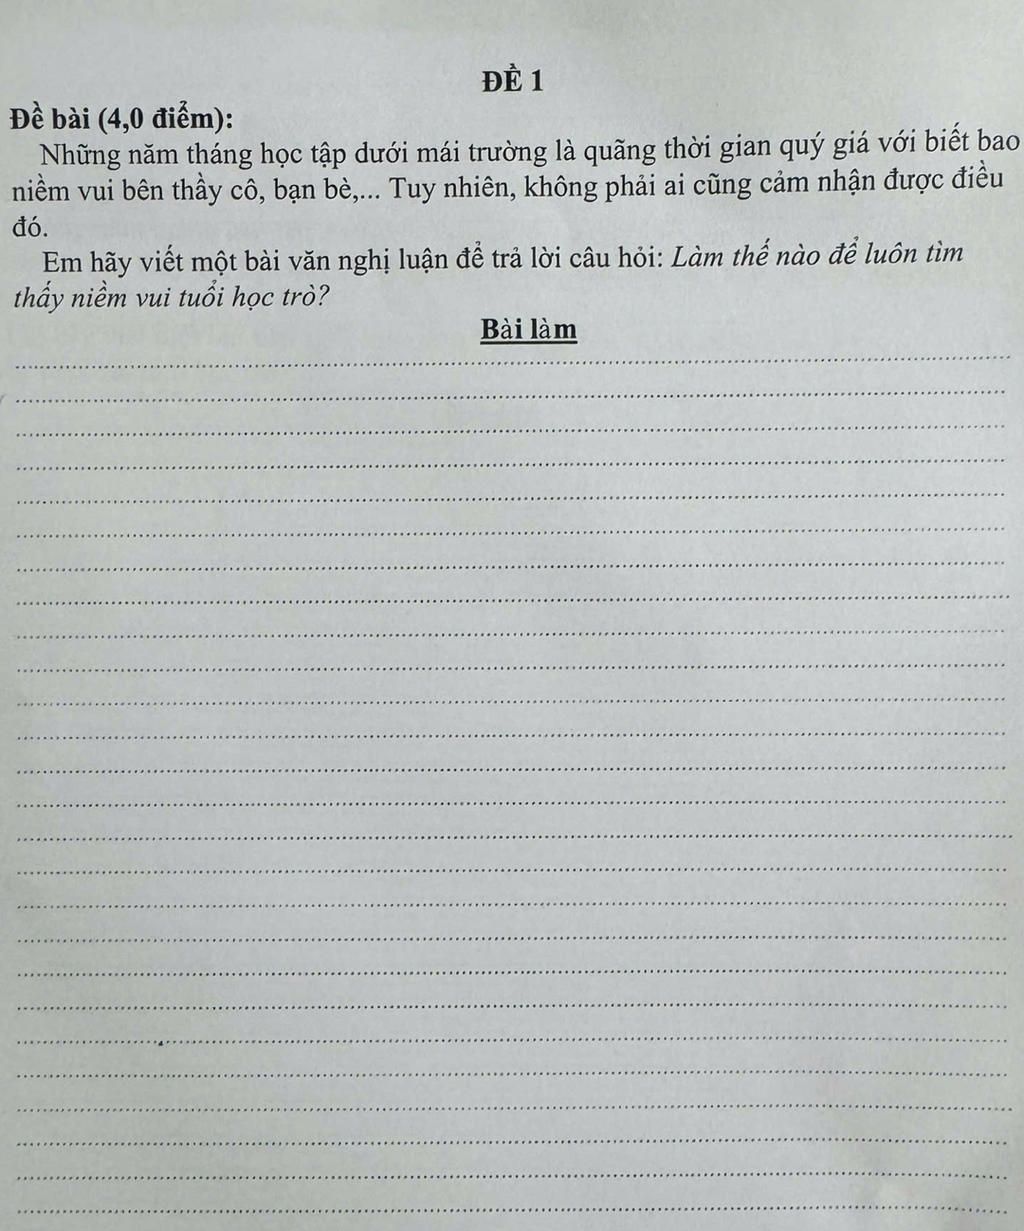 ĐỀ 1
Đề bài (4,0 điểm):
Những năm tháng học tập dưới mái trường là quãng thời gian quý giá với biết bao
niềm vui bên thầy cô, bạn bè,... Tuy nhiên, không phải ai cũng cảm nhận được điều
đó.
Em hãy viết một bài văn nghị luận để trả lời câu hỏi: Làm thế nào để luôn tìm
thấy niềm vui tuổi học trò?
Bài làm